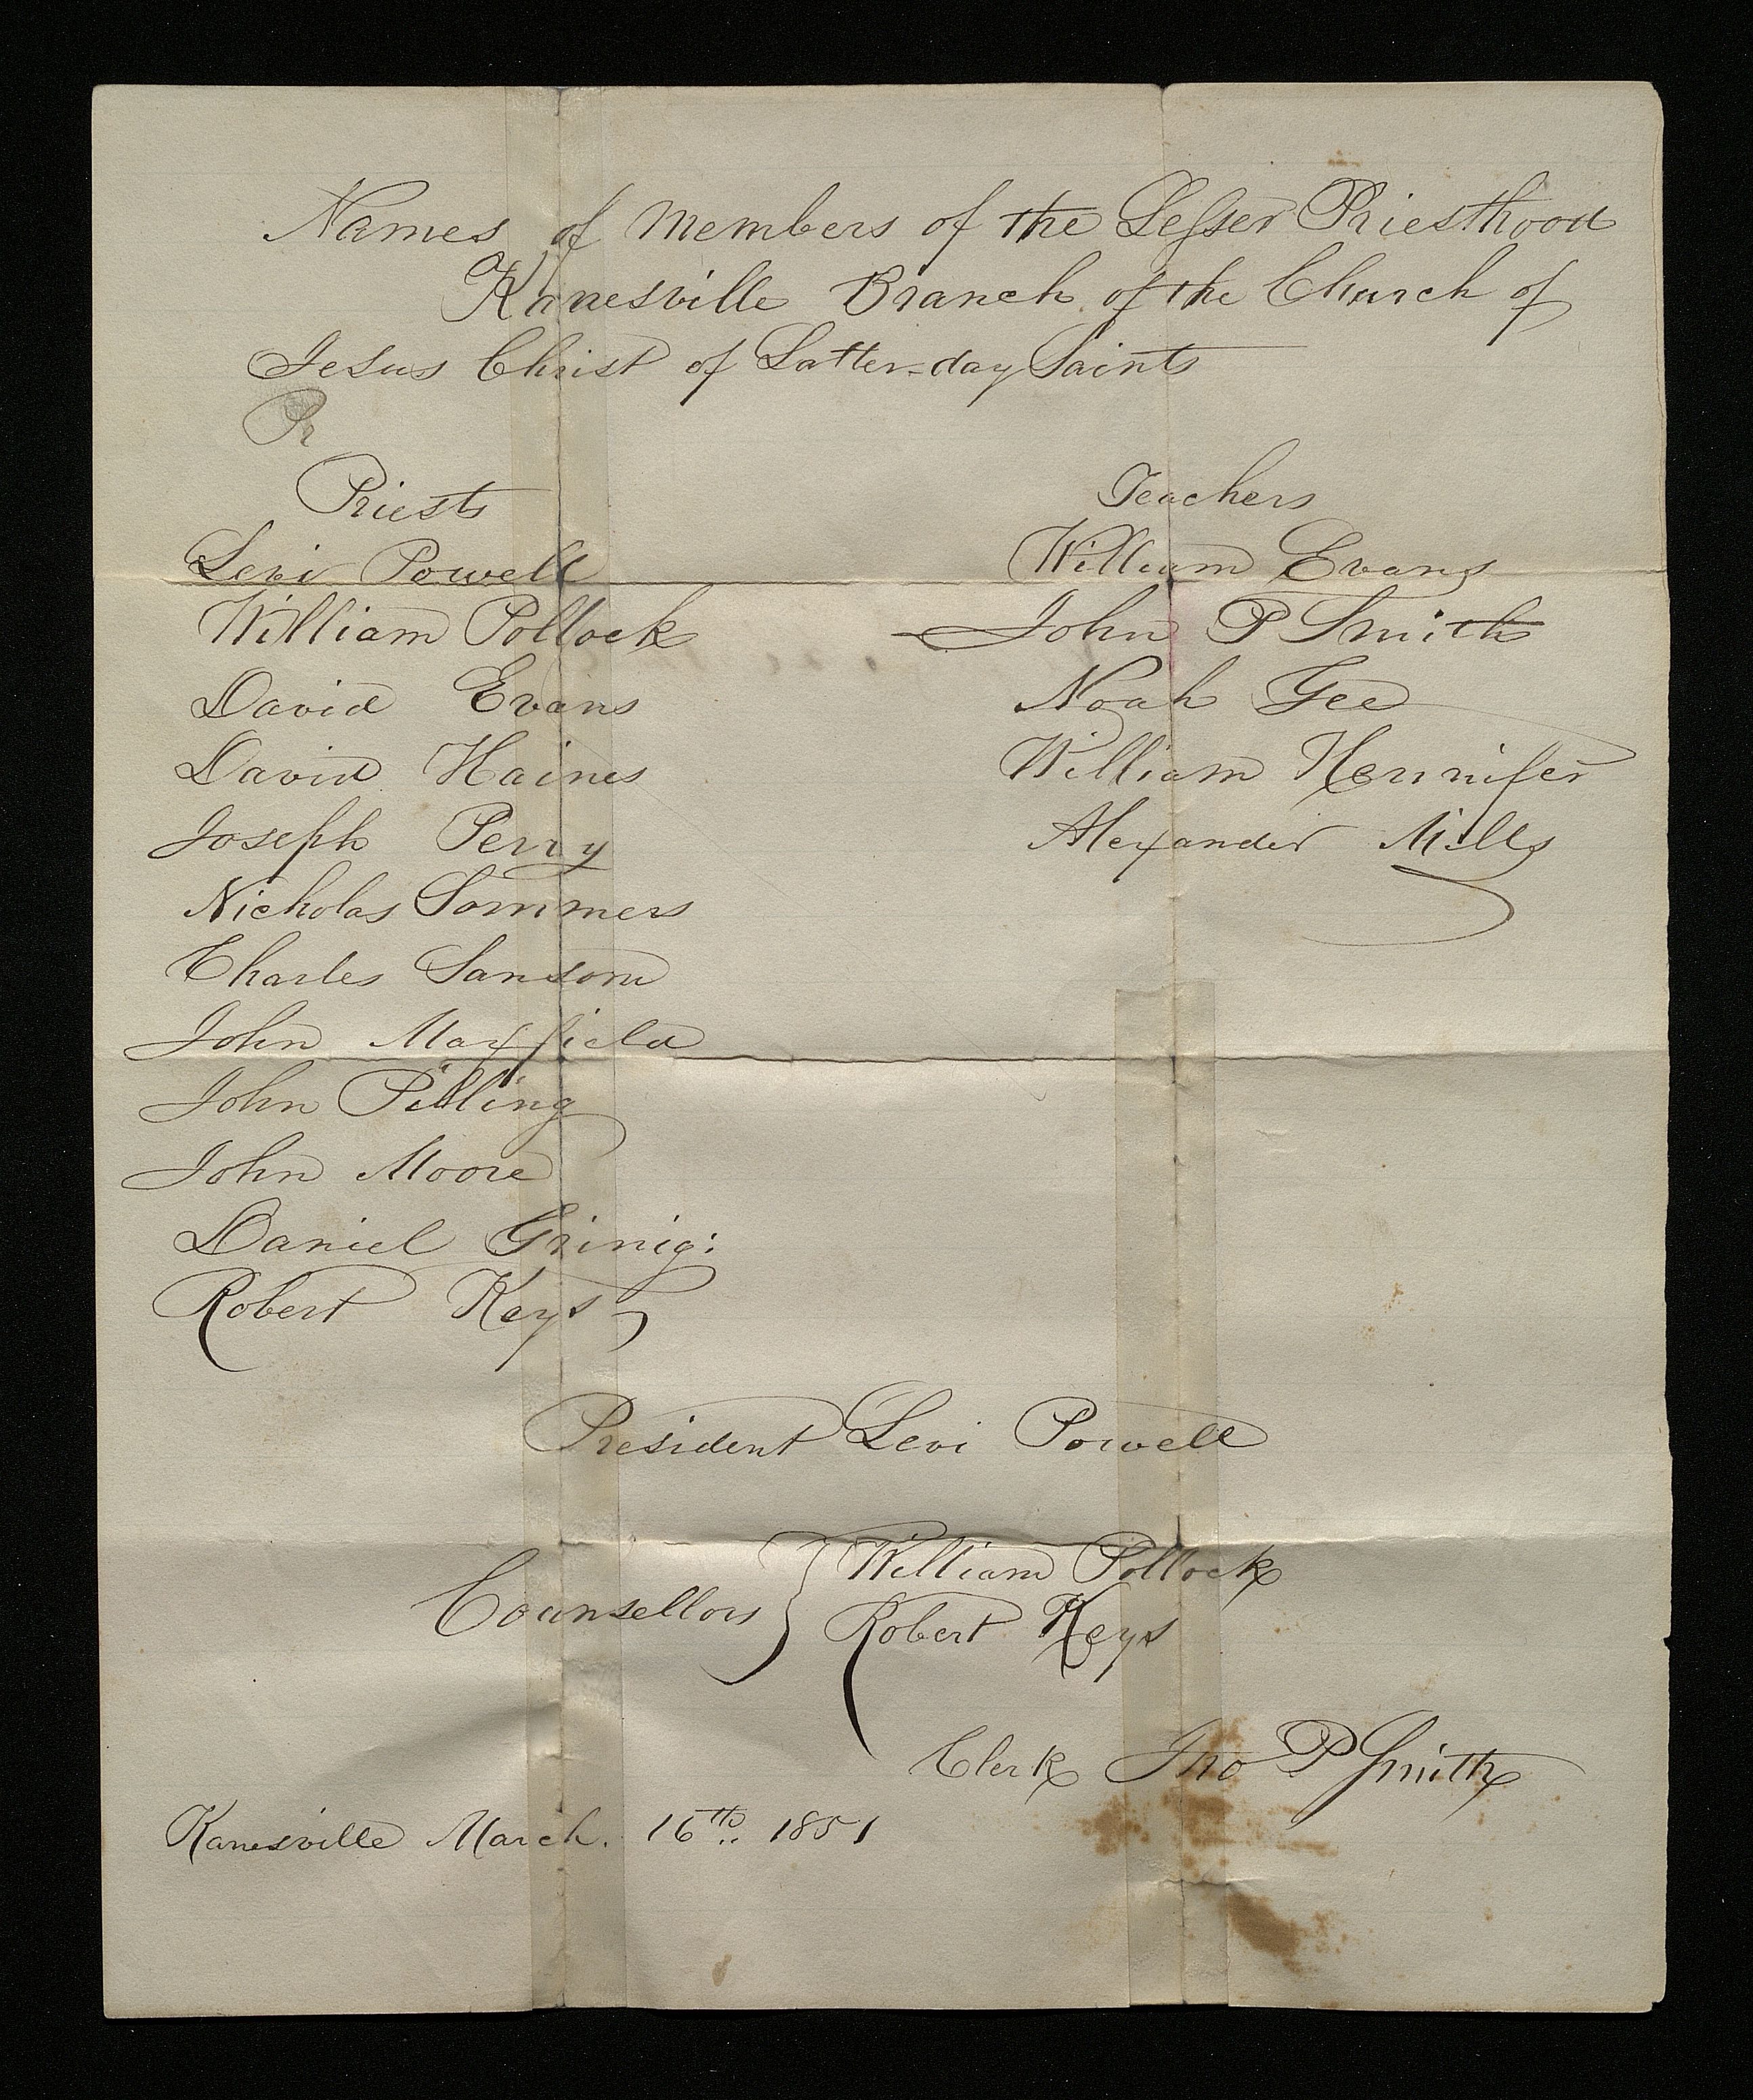 Names of Members of the Lesser Priesthood
Kanesville Branch of the Church of
Jesus Christ of Latter-day Saints
Pr
Priests
Levi Powell
William Pollock
David Evans
David Haines
Joseph Perry
Nicholas Sommers
Charles Sansom
John Mayfield
John Pilling
John Moore
Daniel Grinig:
Robert Keys
Teachers
William Evans
John P Smith
Noah Gee
William Hennifer
Alexander Mills
President Levi Powell
Counsellors } William Pollock
Robert Keys
Clerk Jno P Smith
Kanesville March. 16th 1851